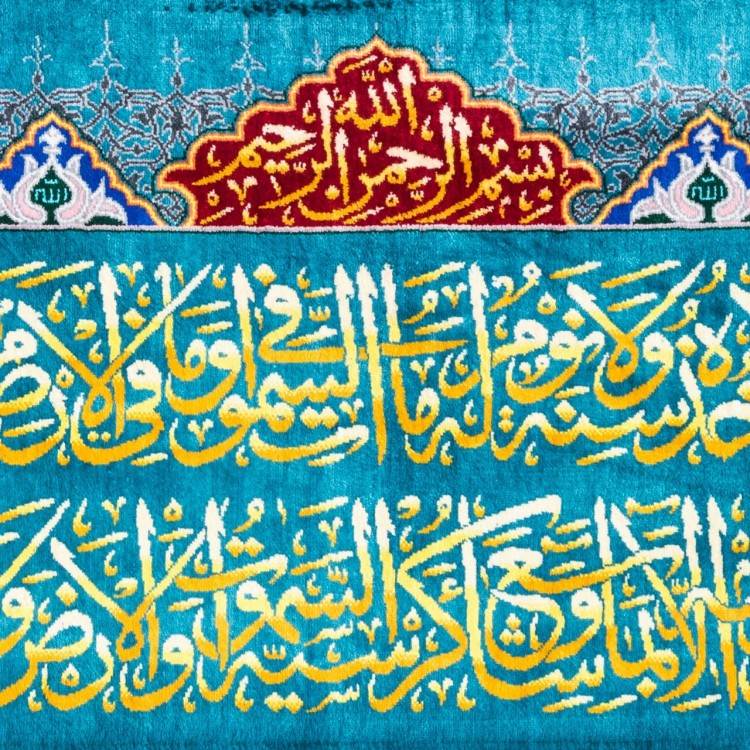 بسم الله الرحمن الرحيم
الله
الله
خذه سنة ولا نوم له ما في السموات وما في الارض
الا بما شاء وسع كرسيه السموات والارض و